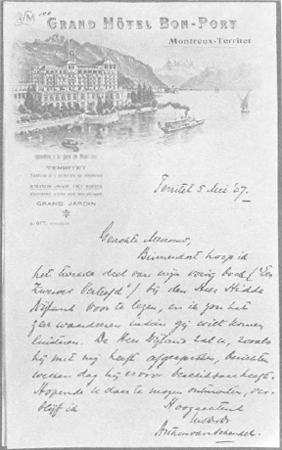 GRAND HÔTEL BON-PORT
Montreux-Territet
TERRITET
GRAND JARDIN
Territet 5 Mei '07.
Geachte Mevrouw,
Binnenkort hoop ik
het tweede deel van mijn vorig boek ("Een
Zwerver Verliefd") bij den Heer Hidde
Nijland voor te lezen, en ik zou het
zeer waardeeren indien gij wilt komen
luisteren. De Heer Nijland zal u, zooals
hij met mij heeft afgesproken, berichten
welken dag hij er voor beschikbaar heeft.
Hopende u daar te mogen ontmoeten, ver-
blijf ik
Hoogachtend
Arthur van Schendel.